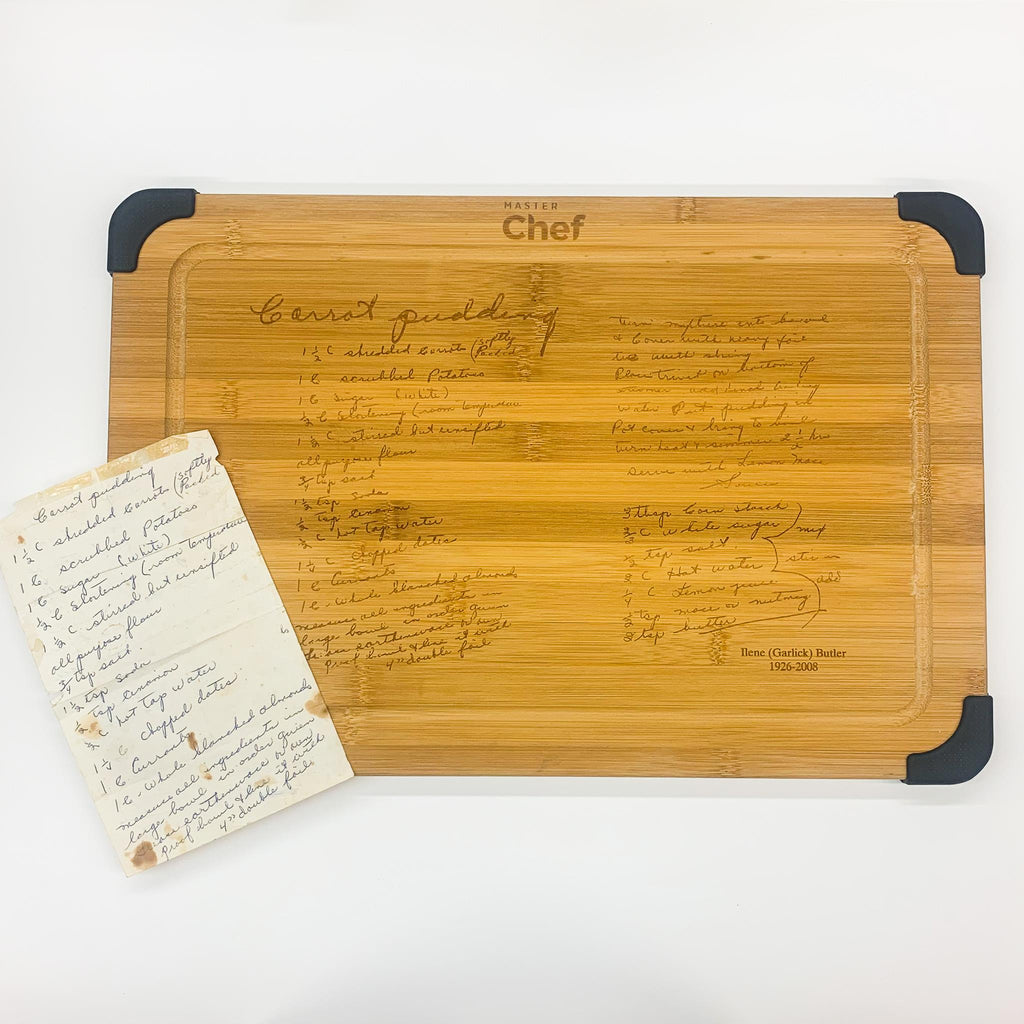 MASTER
Chef
Carrot pudding
1 1/2 C shredded Carrots (Softly Packed)
1 C. scrubbed Potatoes
1 C Sugar (White)
1/2 C Shortening (room temperature
1 1/2 C - stirred but unsifted
all purpose flour
3/4 tsp salt
1 1/2 tsp soda
1/2 tsp cinamon
2 C hot tap water
1 1/2 C chopped dates
1 C Currants
1 C - Whole blanched almonds
measure all ingredients in
large bowl in order given
earthenware or oven
proof bowl & line it with
4" double foil
Turn mixture into bowl
& Cover with heavy foil
tie with string
Place trivet on bottom of
water Put pudding in
Pot cover & bring to boil
turn heat & simmer 2 1/2 hrs
serve with Lemon Mace
Sauce
3 tbsp Corn Starch
2/3 C white sugar mix
tsp salt.
C Hot water stir in
1/4 C Lemon juice add
1/2 tsp mace or nutmeg
3 tsp butter
Ilene (Garlick) Butler
1926-2008
Carrot pudding
1 1/2 C shredded Carrots (Softly Packed)
1 C. scrubbed Potatoes
1 C Sugar (White)
1/2 C Shortening (room temperature
1 1/2 C - stirred but unsifted
all purpose flour
3/4 tsp salt.
1 1/2 tsp soda
1/2 tsp cinamon
2 C hot tap water
1 1/2 C chopped dates.
1 C Currants
1 C - Whole blanched almonds
measure all ingredients in
large bowl in order given
earthenware or oven
proof bowl & line it with
4" double foil